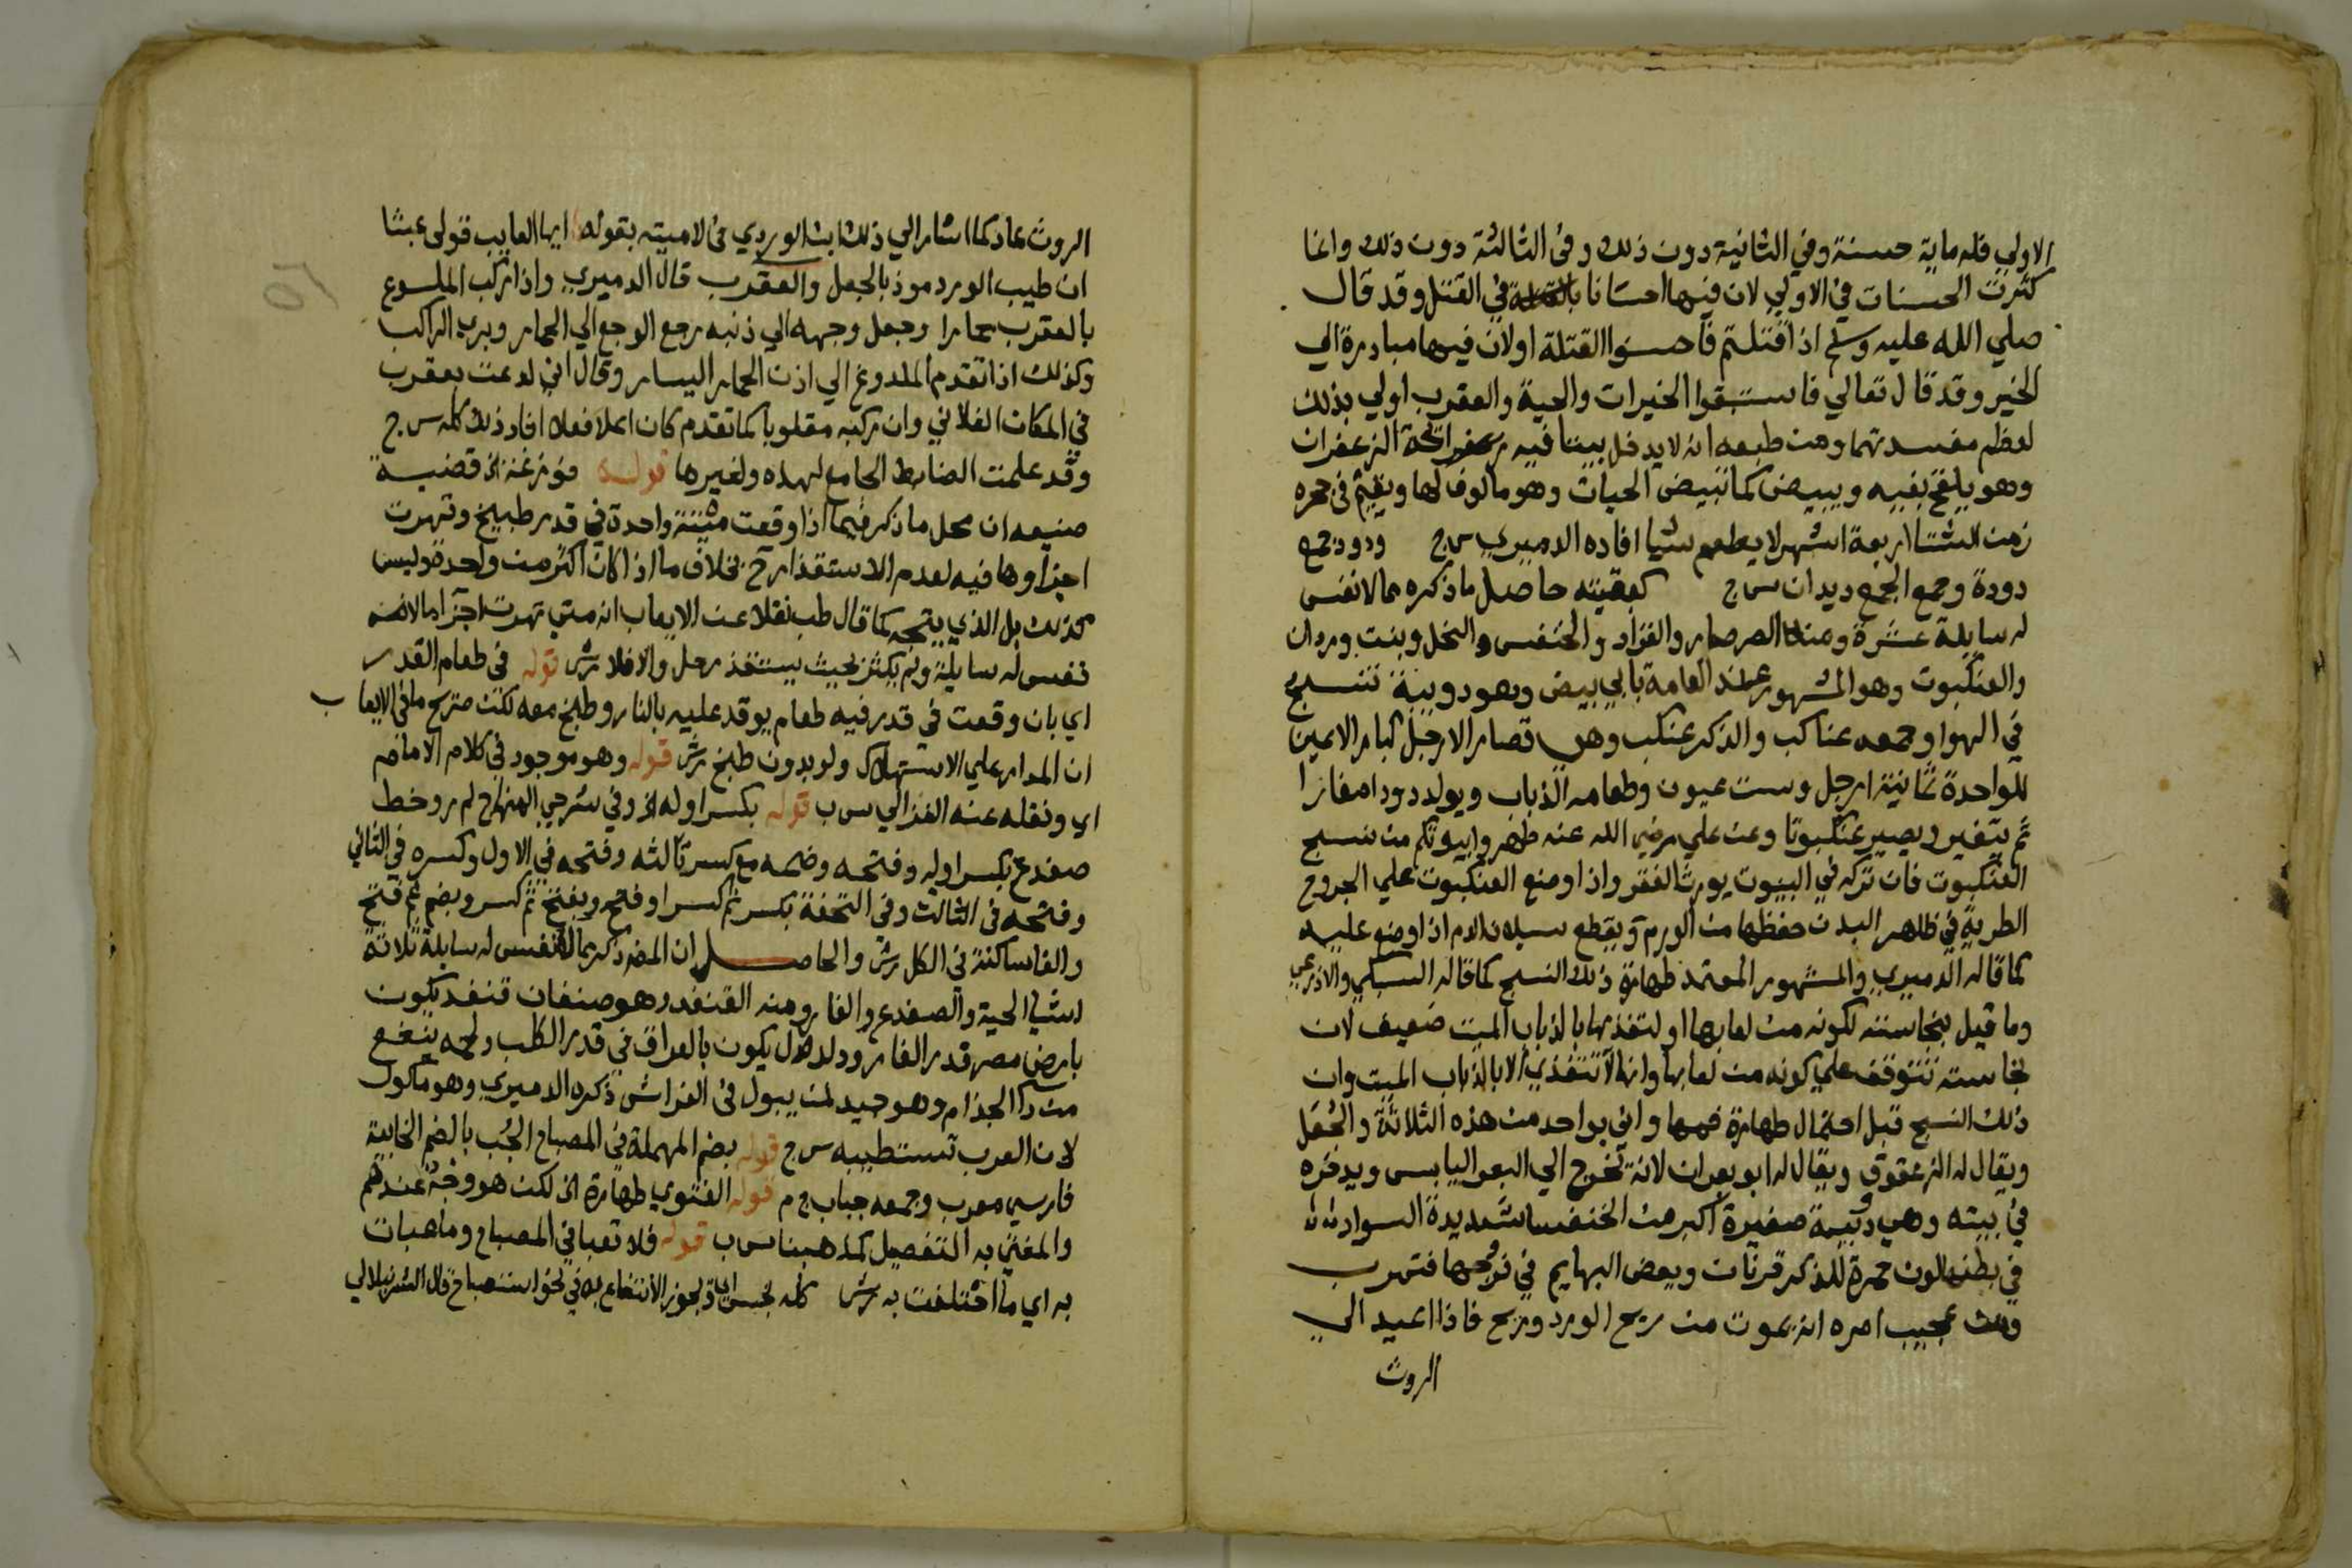 الاولي فله ماية حسنة وفي الثانية دون ذلك وفي الثالثة دون ذلك وانما
كثرت الحسنات في الاولي لان فيها احسانا في القتل وقد قال
صلي الله عليه وسلم اذا قتلتم فاحسنوا القتلة اولان فيها مبادرة الي
الخير وقد قال تعالي فاستبقوا الخيرات والحية والعقرب اولي بذلك
لعظم مفسدتهما ومن طبعه انه لا يدخل بيتا فيه رائحة الزعفران
وهو يلقح بفيه ويبيض كما تبيض الحيات وهو مالوف لها ويقيم في جحره
زمن الشتا اربعة اشهر لا يطعم شيا افاده الدميري س ج ودود جمع
دودة وجمع الجمع ديدان س ج كبقيته حاصل ما ذكره مما لا نفس
له سايلة عشرة ومنه الصرصار والقراد والخنفس والنحل وبنت وردان
والعنكبوت وهو المشهور عند العامة بابي بيض وهو دويبة تنسج
في الهوا وجمعه عناكب والذكر عنكب وهي قصار الارجل كبار الاعين
للواحدة ثمانية ارجل وست عيون وطعامه الذباب ويولد دودا صغارا
ثم يتغير ويصير عنكبوتا وعن علي رضي الله عنه طهروا بيوتكم من نسج
العنكبوت فان تركه في البيوت يورث الفقر واذا وضع العنكبوت علي الجروح
الطرية في ظاهر البدن حفظها من الورم ويقطع سيلان الدم اذا وضع عليه
كما قاله الدميري والمشهور المعتمد طهارة ذلك النسج كما قاله السبكي والاذرعي
وما قيل بنجاسته لكونه من لعابها او لتغذيها بالذباب الميت ضعيف لان
نجاسته تتوقف علي كونه من لعابها وانها لا تتغذي الا بالذباب الميت وان
ذلك النسج قبل احتمال طهارة فمها واني بواحد من هذه الثلاثة والجُعَل
ويقال له الزعقوق ويقال له ابو بعران لانه تخرج الي البعر اليابس ويدخره
في بيته وهي دويبة صغيرة اكبر من الخنفسا شديدة السواد
في بطنها لون حمرة للذكر قرنان وبعض البهايم في فرجها فتهرب
ومن عجيب امره انه يموت من ريح الورد وريح فاذا اعيد الي
الروث
الروث عاد كما اشار الي ذلك ابن الوردي في لاميته بقوله ايها العايب قولي عبثا
ان طيب الورد موذ بالجعل والعقرب قال الدميري واذا ركب الملسوع
بالعقرب حمارا وجعل وجهه الي ذنبه رجع الوجع الي الحمار وبري الراكب
وكذلك اذا تقدم الملدوغ الي اذن الحمار اليسار وقال اني لدغت بعقرب
في المكان الفلاني وان ركبه مقلوبا كما تقدم كان اعلا فعلا افاد ذلك كله س ج
وقد علمت الضابط الجامع لهذه ولغيرها قوله ووزغة الخ قضية
صنيعه ان محل ما ذكر فيما اذا وقعت ميتة واحدة في قدر طبيخ وتهرت
اجزاوها فيه لعدم الاستقذار ح بخلاف ما اذا كان اكثر من واحدة وليس
كذلك بل الذي يتجه كما قال طب نقلا عن الايعاب انه متي تهرت اجزا ما لا
نفس له سايلة ولم يكثر بحيث يستقذر حل والا فلا رش قوله في طعام القدر
اي بان وقعت في قدر فيه طعام يوقد عليه بالنار وطبخ معه لكن صريح ما في الايعاب
ان المدار علي الاستهلاك ولو بدون طبخ رش قوله وهو موجود في كلام الامام
اي ونقله عنه الغزالي س ب قوله بكسر اوله الخ وفي شرحي المنهاج لم ر وخط
ضفدع بكسر اوله وفتحه وضمه مع كسر ثالثه وفتحه في الاول وكسره في الثاني
وفتحه في الثالث وفي التحفة بكسر ثم كسر او فتح وبفتح ثم كسر وبضم ثم فتح
والفا ساكنة في الكل رش والحاصل ان المص ذكر مما لا نفس له سايلة ثلاثة
اشيا الحية والضفدع والفار ومنه القنفد وهو صنفان قنفد يكون
بارض مصر قدر الفار ودلدل يكون بالعراق في قدر الكلب ولحمه ينفع
من دا الجذام وهو جيد لمن يبول في الفراش ذكره الدميري وهو ماكول
لان العرب تستطيبه س ج قوله بضم المهملة في المصباح الجُب بالضم الخابية
فارسي معرب وجمعه جباب ج م قوله الفتوي طهارة الخ لكن هو وجهٌ عندهم
والمفتي به التفصيل كمذهبنا س ب قوله فلا تعبا في المصباح وما عبات
به اي ما احتلفت به رش كله نجس اي ويجوز الانتفاع به في نحو استصباح قال الشرنبلالي